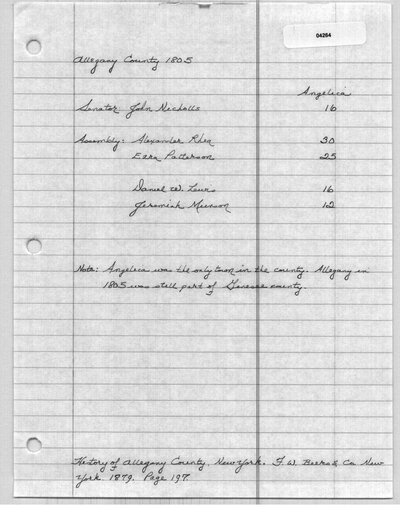 04264
Allegany County 1805
Angelica
Senator: John Nicholls 16
Assembly: Alexander Rhea 30
Ezra Patterson 25
Daniel W. Lewis 16
Jeremiah Munson 12
Note: Angelica was the only town in the county. Allegany in
1805 was still part of Genesee county.
History of Allegany County, New York. F. W. Beers & Co. New
York. 1879. Page 137.